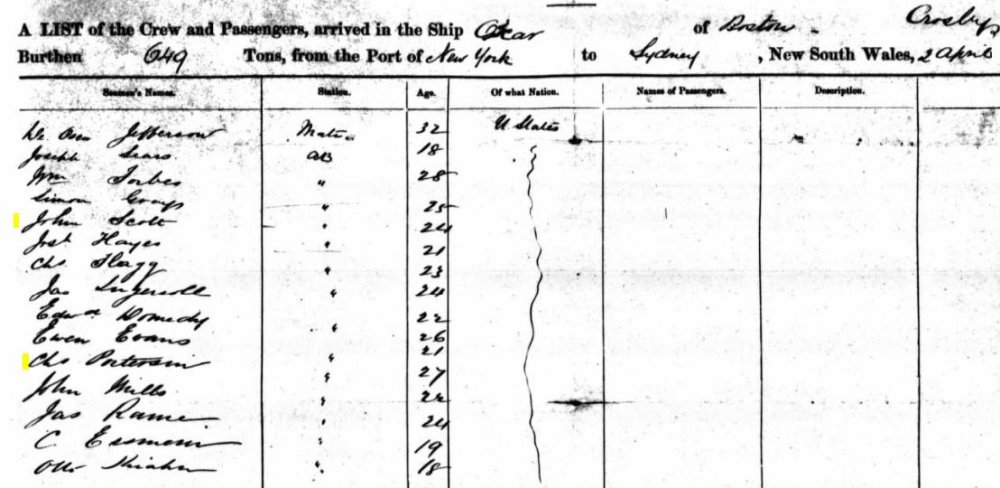 Crosby
A LIST of the Crew and Passengers, arrived in the Ship Oscar of Boston
Burthen 649 Tons, from the Port of New York to Sydney, New South Wales, 2 April
Seaman's Names. Station. Age. Of what Nation. Names of Passengers. Description.
Jefferson Mate 32 U States
Joseph Sears AB 18
Wm Forbes " 28
Simon " 25
John Scott " 24
Josh Hayes " 21
Chs Flagg " 23
Jas Ingersoll " 24
22
Ewen Evans " 26
Chs Peterson " 21
John Mills " 27
Jas " 22
C. " 24
Otto " 19
18